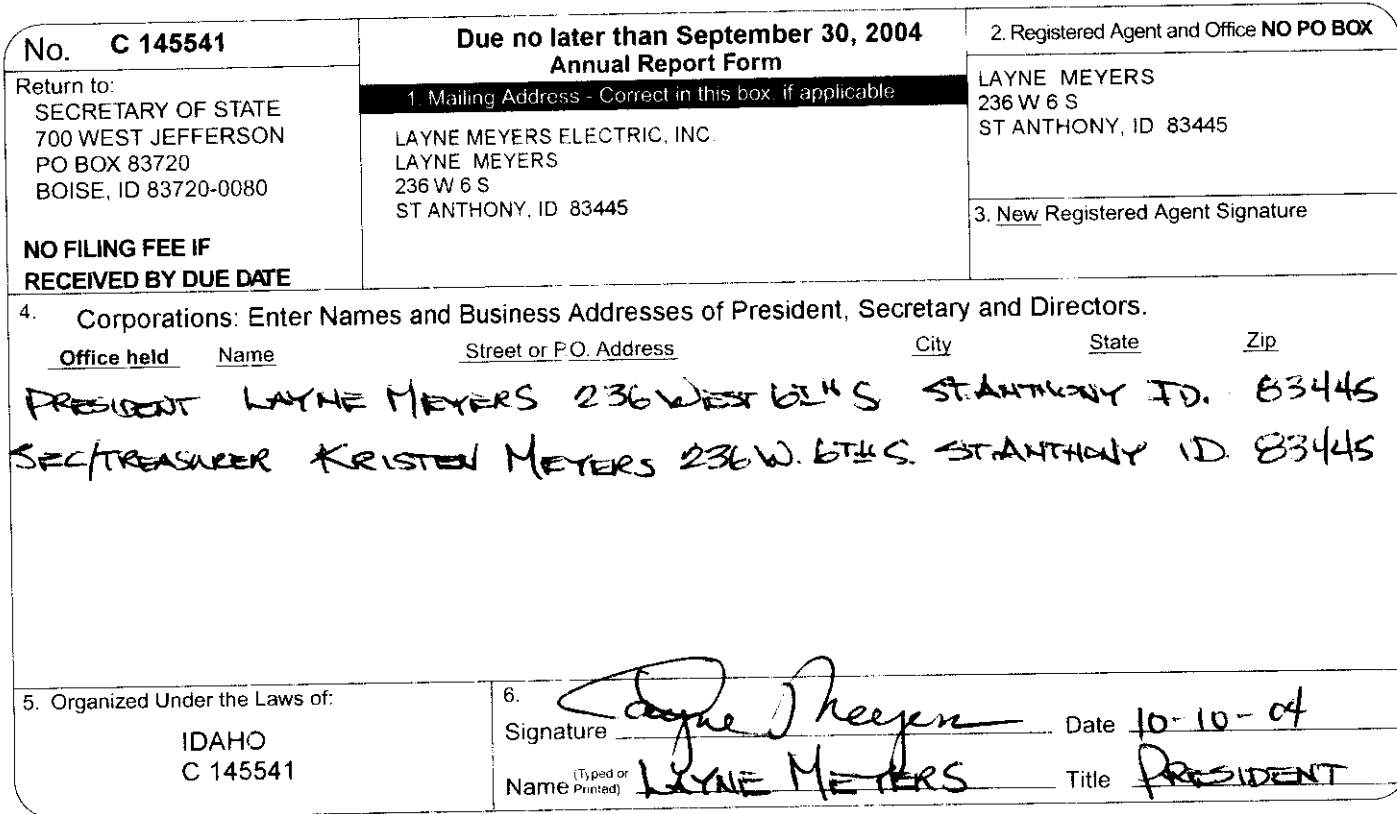 No. C 145541
Return to:
SECRETARY OF STATE
700 WEST JEFFERSON
PO BOX 83720
BOISE, ID 83720-0080
NO FILING FEE IF
RECEIVED BY DUE DATE
Due no later than September 30, 2004
Annual Report Form
1. Mailing Address - Correct in this box, if applicable
LAYNE MEYERS ELECTRIC, INC.
LAYNE MEYERS
236 W 6 S
ST ANTHONY, ID 83445
2. Registered Agent and Office NO PO BOX
LAYNE MEYERS
236 W 6 S
ST ANTHONY, ID 83445
3. New Registered Agent Signature
4. Corporations: Enter Names and Business Addresses of President, Secretary and Directors.
Office held Name Street or P.O. Address City State Zip
PRESIDENT LAYNE MEYERS 236 WEST 6TH S ST. ANTHONY ID. 83445
SEC/TREASURER KRISTEN MEYERS 236 W. 6TH S. ST. ANTHONY ID. 83445
5. Organized Under the Laws of:
IDAHO
C 145541
6.
Signature Layne Meyers Date 10-10-04
Name (Typed or Printed) LAYNE MEYERS Title PRESIDENT